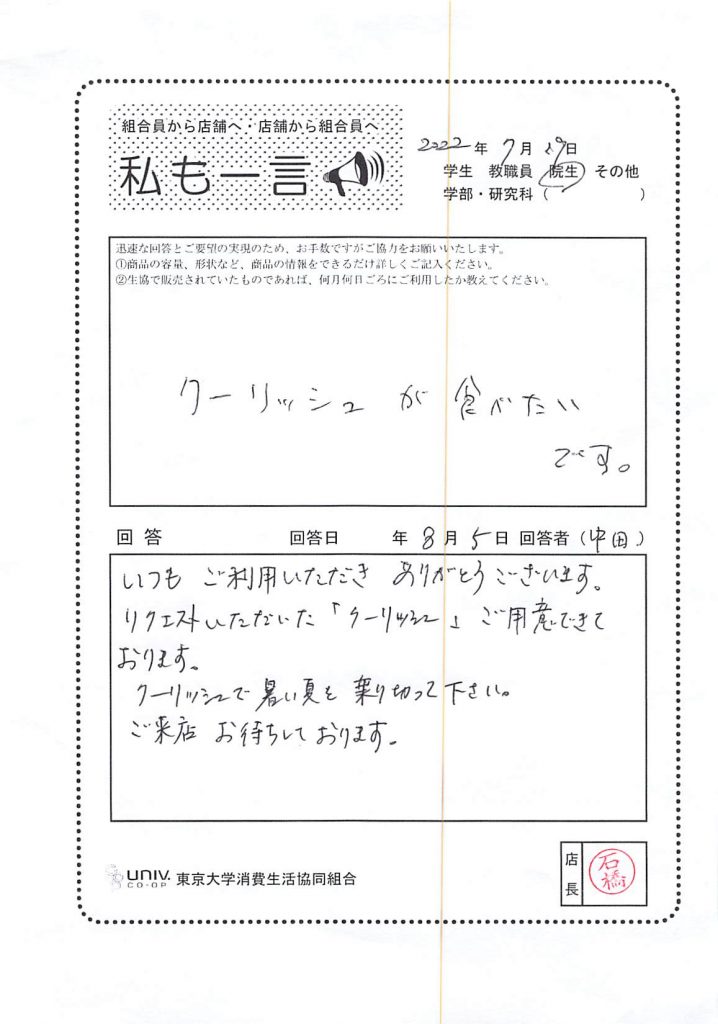 組合員から店舗へ・店舗から組合員へ
私も一言
2022年 7月 29日
学生 教職員 院生 その他
学部・研究科（ ）
迅速な回答とご要望の実現のため、お手数ですがご協力をお願いいたします。
①商品の容量、形状など、商品の情報をできるだけ詳しくご記入ください。
②生協で販売されていたものであれば、何月何日ごろにご利用したか教えてください。
クーリッシュ が 食べたい
です。
回答 回答日 年 8月 5日 回答者（中田）
いつも ご利用いただき ありがとうございます。
リクエストいただいた「クーリッシュ」ご用意できて
おります。
クーリッシュで 暑い夏を 乗り切って下さい。
ご来店 お待ちしております。
UNIV.
CO-OP
東京大学消費生活協同組合
店長
石橋